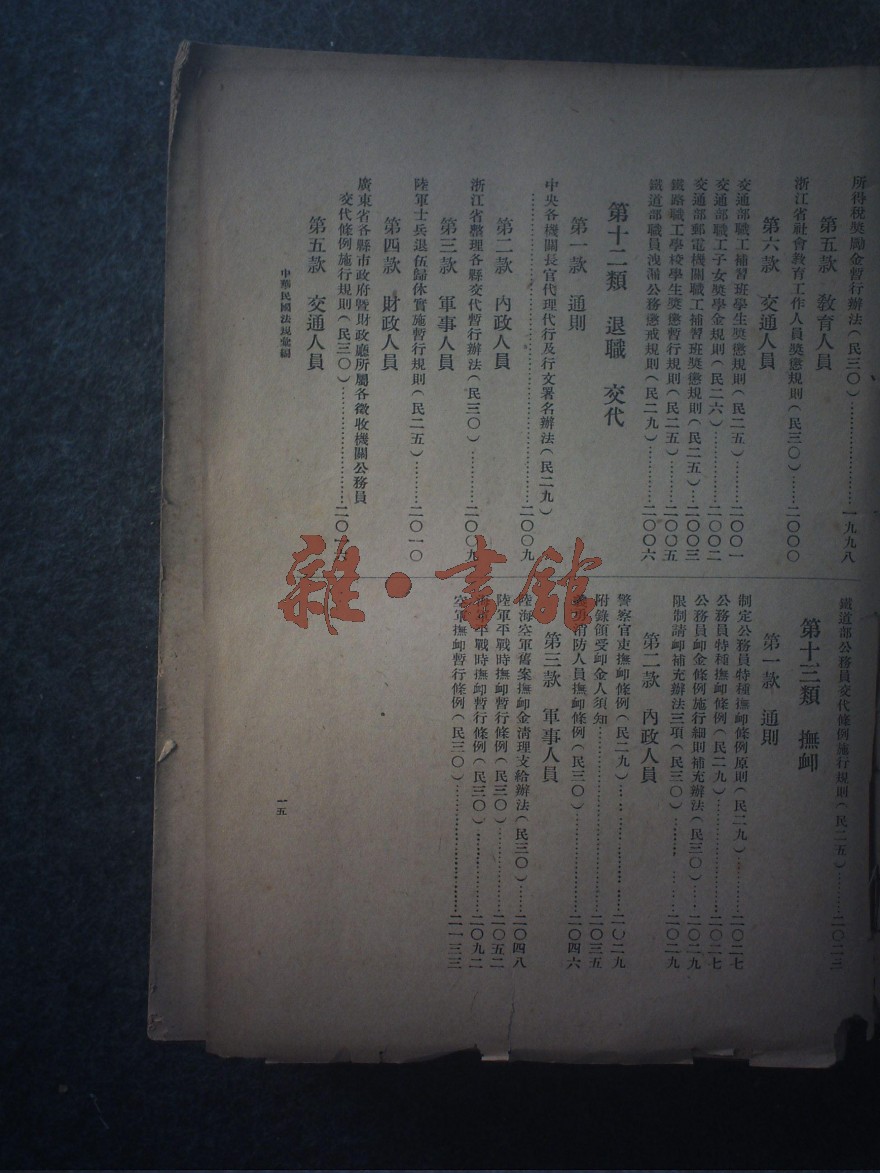 所得稅獎勵金暫行辦法(民三〇)…………一九九八
第五款 敎育人員
浙江省社會敎育工作人員獎懲規則(民三〇)……二〇〇〇
第六款 交通人員
交通部職工補習班學生獎懲規則(民二五)……二〇〇一
交通部職工子女獎學金規則(民二六)…………二〇〇二
交通部郵電機關職工補習班獎懲規則(民二五)…二〇〇三
鐵路職工學校學生獎懲暫行規則(民二五)……二〇〇五
鐵道部職員洩漏公務懲戒規則(民二九)………二〇〇六
第十二類 退職 交代
第一款 通則
中央各機關長官代理代行及行文署名辦法(民二九)
……………………………………二〇〇九
第二款 內政人員
浙江省整理各縣交代暫行辦法(民三〇)………二〇〇九
第三款 軍事人員
陸軍士兵退伍歸休實施暫行規則(民二五)……二〇一〇
第四款 財政人員
廣東省各縣市政府暨財政廳所屬各徵收機關公務員
交代條例施行規則(民三〇)……………二〇一六
第五款 交通人員
鐵道部公務員交代條例施行規則(民二五)………二〇二三
第十三類 撫卹
第一款 通則
制定公務員特種撫卹條例原則(民二九)………二〇二七
公務員特種撫卹條例(民二九)……………二〇二七
公務員卹金條例施行細則補充辦法(民三〇)……二〇二九
限制請卹補充辦法三項(民三〇)…………二〇二九
第二款 內政人員
警察官吏撫卹條例(民二九)……………二〇二九
附錄領受卹金人須知……………………二〇三五
義勇消防人員撫卹條例(民三〇)…………二〇四六
第三款 軍事人員
陸海空軍舊案撫卹金清理支給辦法(民三〇)……二〇四八
陸軍平戰時撫卹暫行條例(民三〇)…………二〇五二
海軍平戰時撫卹暫行條例(民三〇)…………二〇九二
空軍撫卹暫行條例(民三〇)……………二一三三
中華民國法規彙編
一五
雜·書館